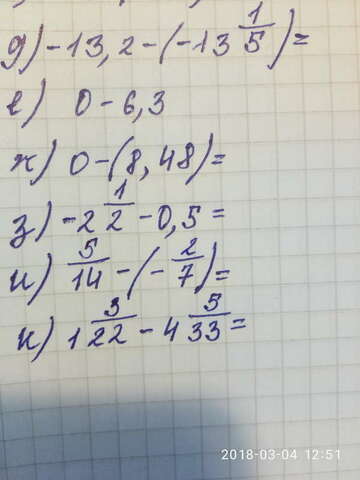 д) -13,2-(-13 1/5)=
е) 0-6,3
ж) 0-(8,48)=
з) -2 1/2 -0,5=
и) 5/14 -(- 2/7)=
к) 1 3/22 - 4 5/33=
2018-03-04 12:51